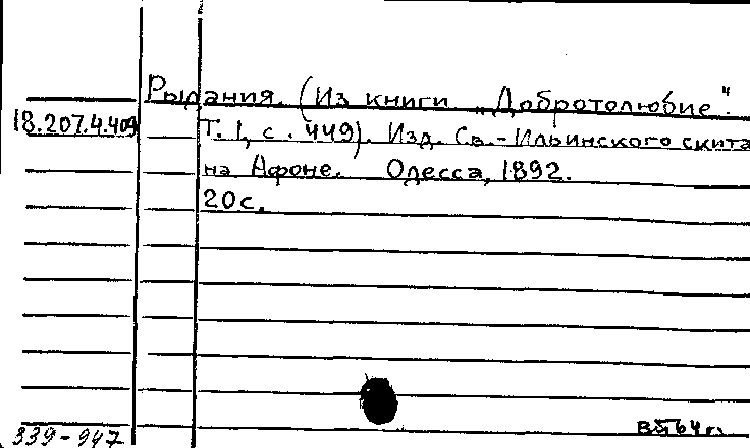 Рыдания. (Из книги „Добротолюбие“.
18.207.4.409 Т. 1, с. 449). Изд. Св.-Ильинского скита
на Афоне. Одесса, 1892.
20 с.
339-947